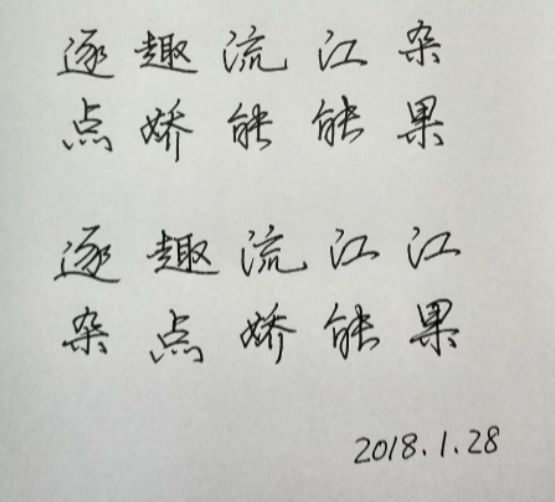 逐趣流江杂
点娇能能果
逐趣流江江
杂点娇能果
2018.1.28